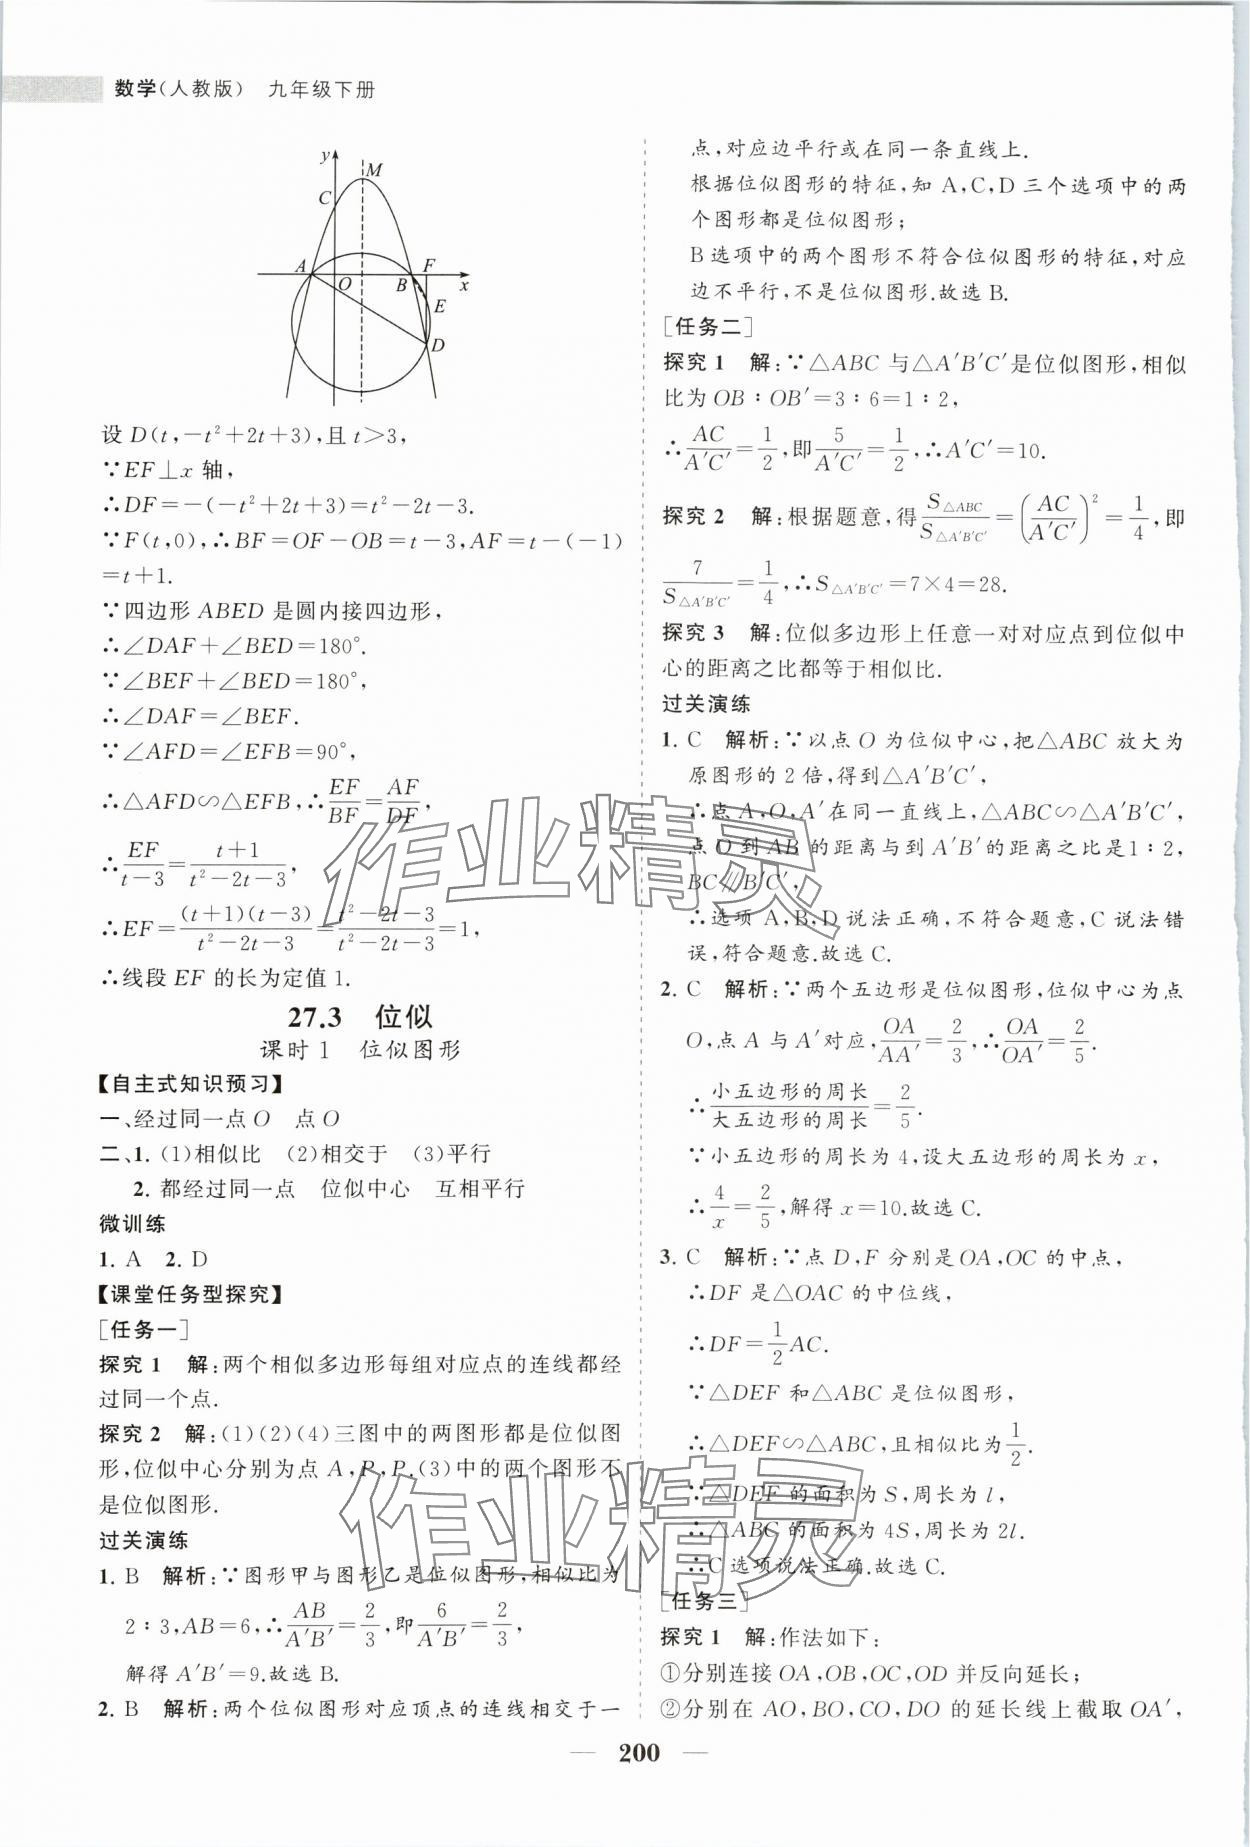 数学(人教版)　九年级下册
y
M
C
A
O
B
F
x
E
D
设 D(t,-t²+2t+3),且 t>3,
∵EF⊥x 轴,
∴DF=-(-t²+2t+3)=t²-2t-3.
∵F(t,0),∴BF=OF-OB=t-3,AF=t-(-1)
=t+1.
∵四边形 ABED 是圆内接四边形,
∴∠DAF+∠BED=180°.
∵∠BEF+∠BED=180°,
∴∠DAF=∠BEF.
∵∠AFD=∠EFB=90°,
∴△AFD∽△EFB,∴EF/BF=AF/DF,
∴EF/(t-3)=(t+1)/(t²-2t-3),
∴EF=(t+1)(t-3)/(t²-2t-3)=(t²-2t-3)/(t²-2t-3)=1,
∴线段 EF 的长为定值 1.
27.3　位似
课时 1　位似图形
【自主式知识预习】
一、经过同一点 O　点 O
二、1. (1)相似比　(2)相交于　(3)平行
2. 都经过同一点　位似中心　互相平行
微训练
1. A　2. D
【课堂任务型探究】
[任务一]
探究 1　解:两个相似多边形每组对应点的连线都经
过同一个点.
探究 2　解:(1)(2)(4)三图中的两图形都是位似图
形,位似中心分别为点 A,P,P.(3)中的两个图形不
是位似图形.
过关演练
1. B　解析:∵图形甲与图形乙是位似图形,相似比为
2∶3,AB=6,∴AB/A′B′=2/3,即6/A′B′=2/3,
解得 A′B′=9.故选 B.
2. B　解析:两个位似图形对应顶点的连线相交于一
点,对应边平行或在同一条直线上.
根据位似图形的特征,知 A,C,D 三个选项中的两
个图形都是位似图形;
B 选项中的两个图形不符合位似图形的特征,对应
边不平行,不是位似图形.故选 B.
[任务二]
探究 1　解:∵△ABC 与△A′B′C′是位似图形,相似
比为 OB∶OB′=3∶6=1∶2,
∴AC/A′C′=1/2,即5/A′C′=1/2,∴A′C′=10.
探究 2　解:根据题意,得S△ABC/S△A′B′C′=(AC/A′C′)²=1/4,即
7/S△A′B′C′=1/4,∴S△A′B′C′=7×4=28.
探究 3　解:位似多边形上任意一对对应点到位似中
心的距离之比都等于相似比.
过关演练
1. C　解析:∵以点 O 为位似中心,把△ABC 放大为
原图形的 2 倍,得到△A′B′C′,
∴点 A,O,A′在同一直线上,△ABC∽△A′B′C′,
点 O 到 AB 的距离与到 A′B′的距离之比是1∶2,
BC∥B′C′,
∴选项 A,B,D 说法正确,不符合题意,C 说法错
误,符合题意.故选 C.
2. C　解析:∵两个五边形是位似图形,位似中心为点
O,点 A 与 A′对应,OA/AA′=2/3,∴OA/OA′=2/5.
∴小五边形的周长/大五边形的周长=2/5.
∵小五边形的周长为 4,设大五边形的周长为 x,
∴4/x=2/5,解得 x=10.故选 C.
3. C　解析:∵点 D,F 分别是OA,OC 的中点,
∴DF 是△OAC 的中位线,
∴DF=1/2AC.
∵△DEF 和△ABC 是位似图形,
∴△DEF∽△ABC,且相似比为1/2.
∵△DEF 的面积为 S,周长为 l,
∴△ABC 的面积为 4S,周长为 2l.
∴C 选项说法正确.故选 C.
[任务三]
探究 1　解:作法如下:
①分别连接 OA,OB,OC,OD 并反向延长;
②分别在 AO,BO,CO,DO 的延长线上截取 OA′,
200
作业精灵
作业精灵